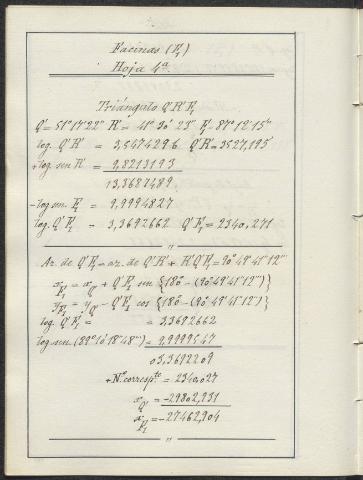 Facinas (F₁)
Hoja 4ª
Triángulo Q'R'F₁
Q'= 51°17'22" R'= 41°30'23" F₁= 87°12'15"
log. Q'R' = 3,5474296 Q'R'= 3527,195
+ log. sen R' = 9,8213193
13,3687489
- log sen. F₁ = 9,9994827
log. Q'F₁ = 3,3692662 Q'F₁= 2340,271
Az. de Q'F₁ = az. de Q'R' + R'Q'F₁ = 90°49'41'12"
x F₁ = x Q' + Q'F₁ sen {180 - (90°49'41'12")}
y F₁ = y Q' - Q'F₁ cos {180 - (90°49'41'12")}
log. Q'F₁ = = 3,3692662
log sen (89°10'18'48") = 9,9999547
03,3692209
+ Nº corresp.te = 2340,027
x Q' = -29802,931
x F₁ = -27462,904